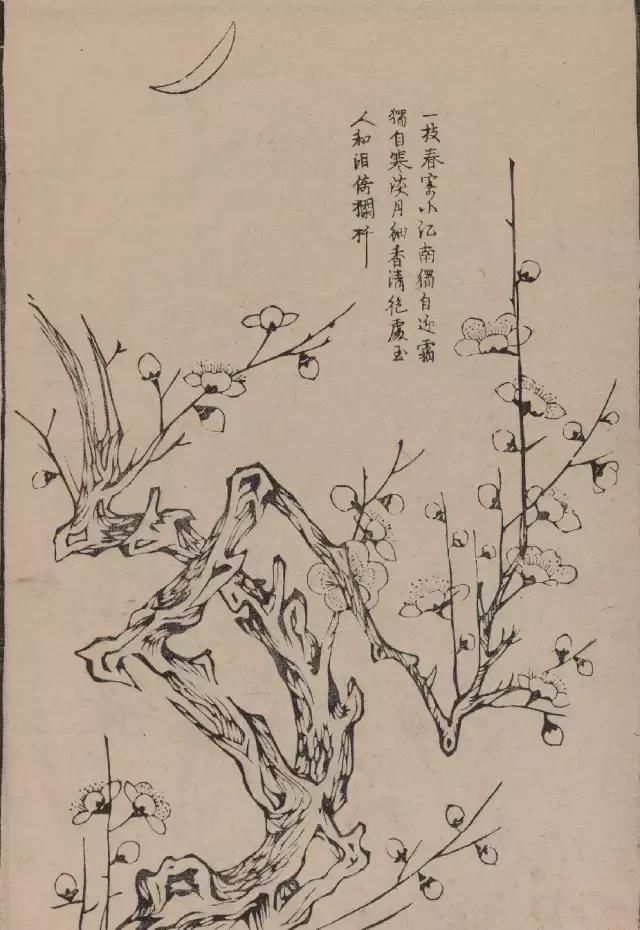 一枝春寄小江南獨自迎霜
獨自寒淡月細香清絕處玉
人和泪倚欄杆